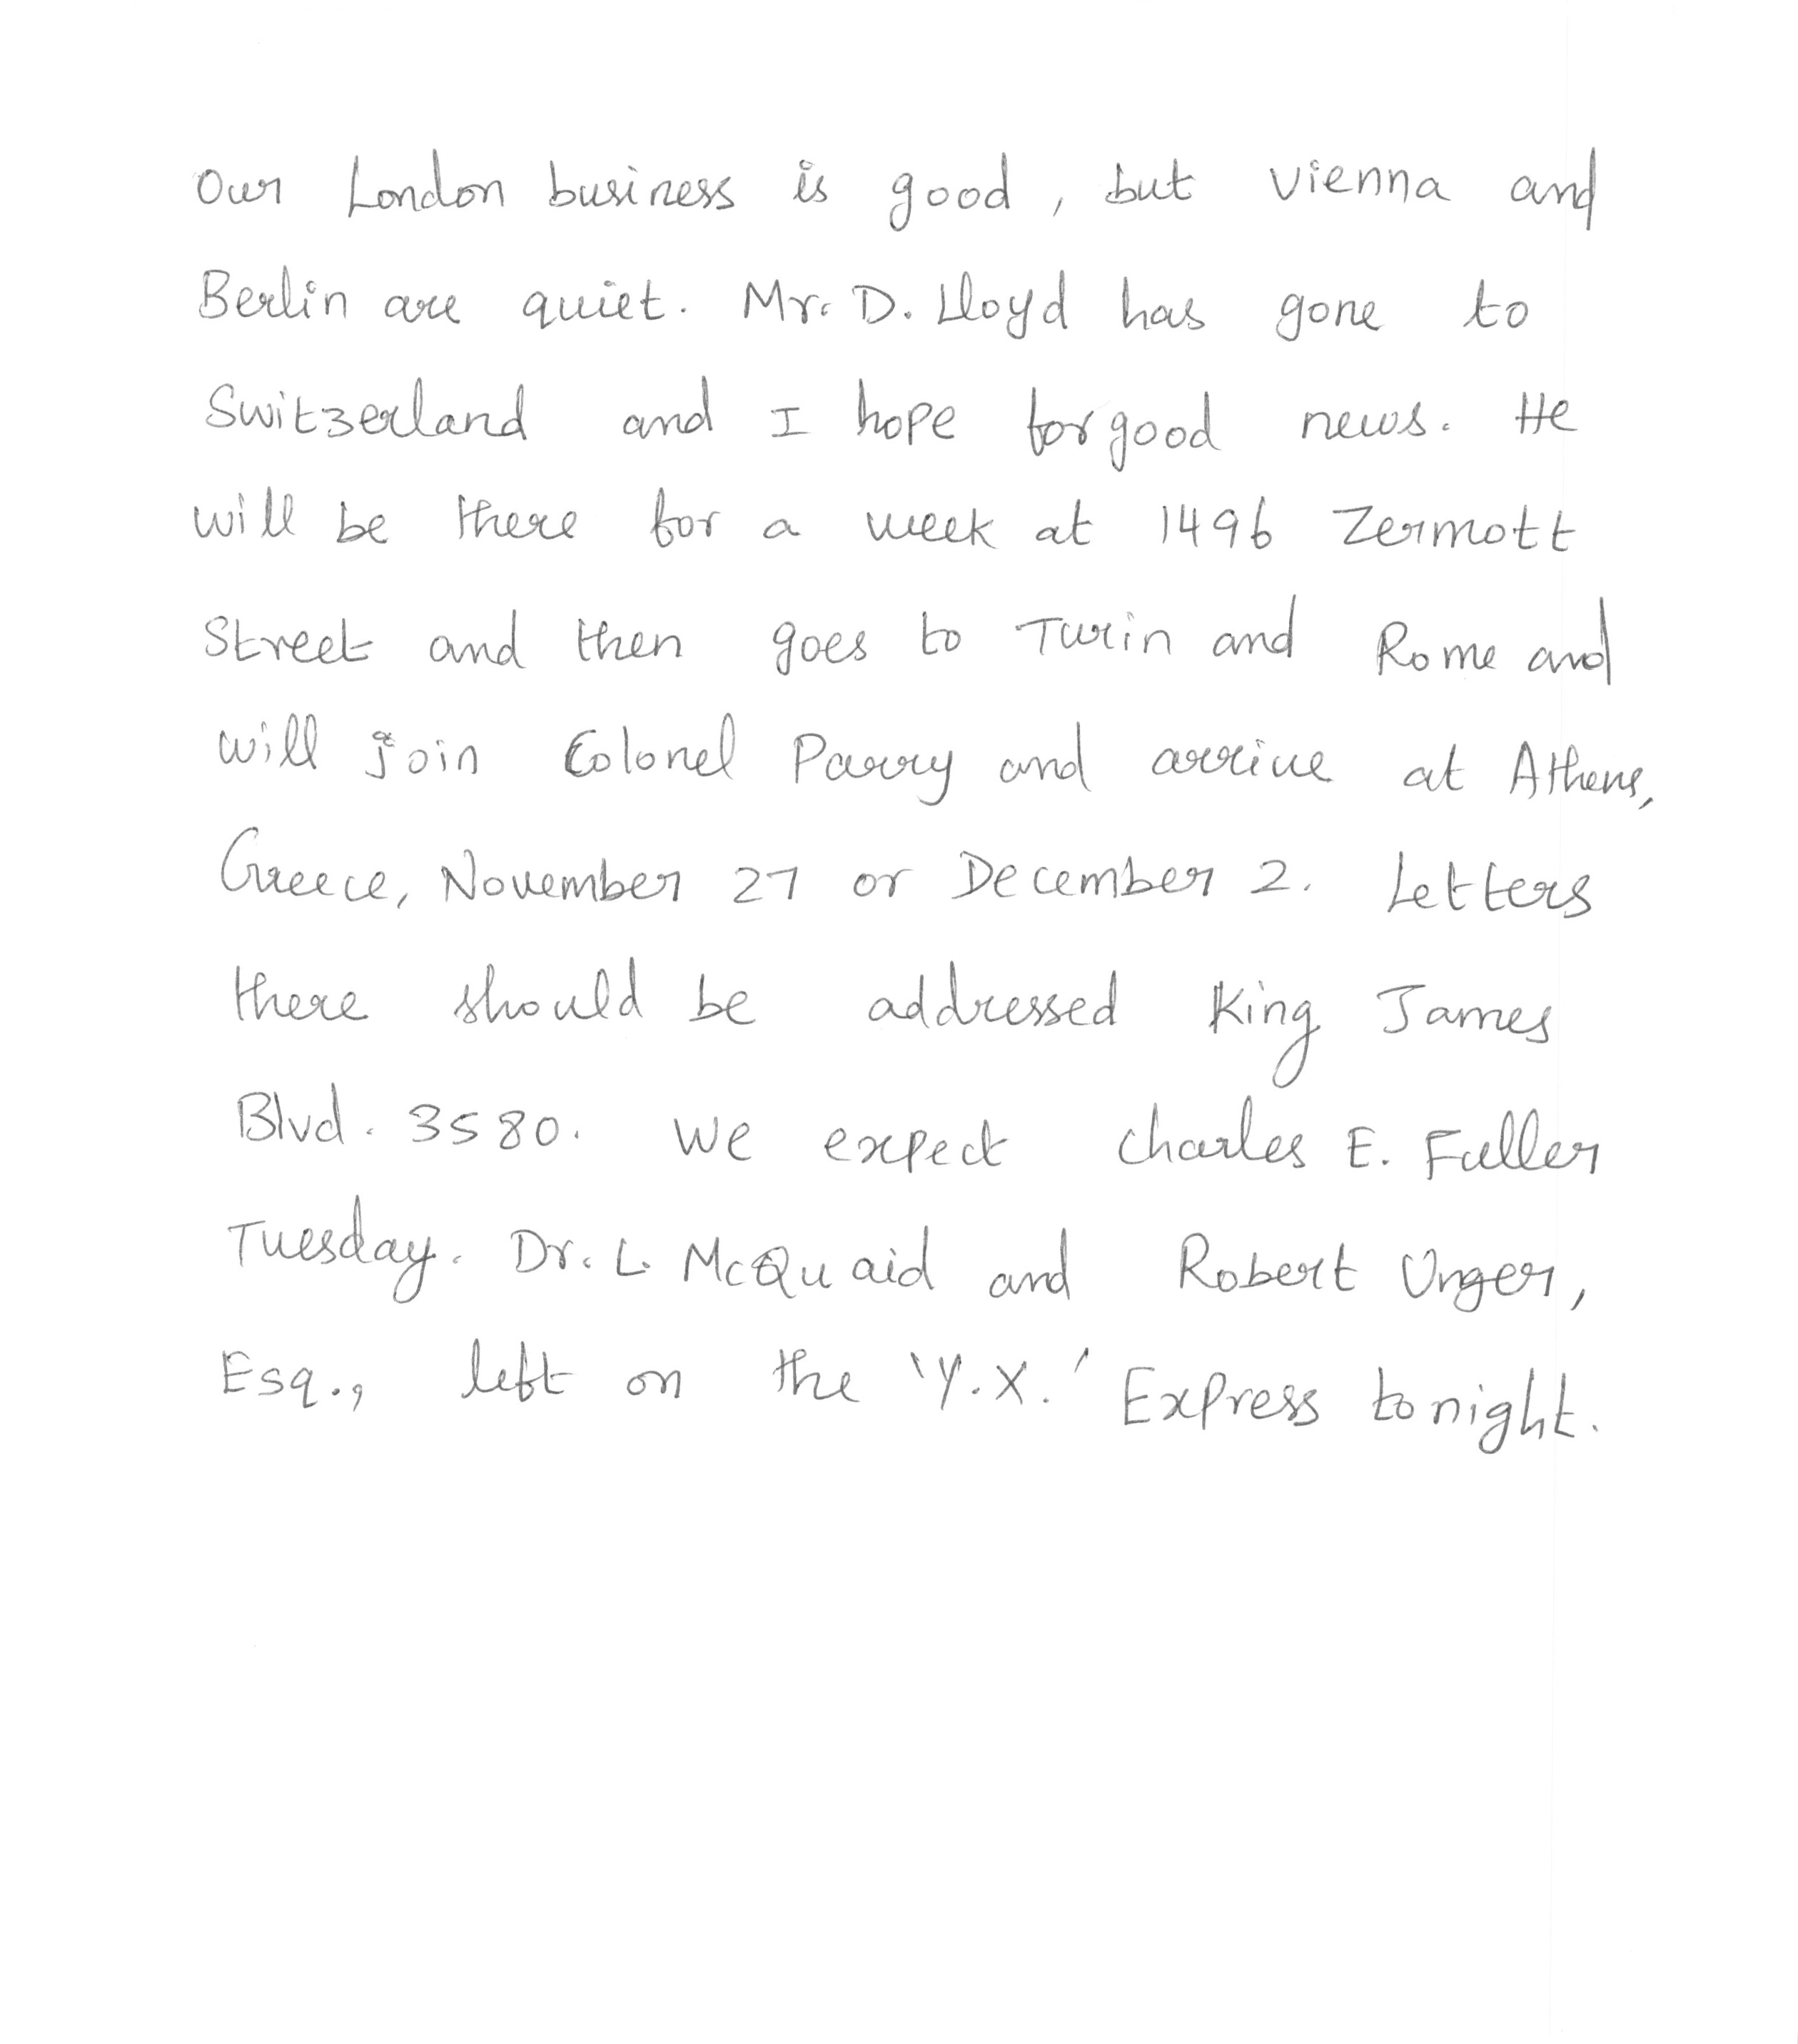 Our London business is good, but Vienna and
Berlin are quiet. Mr. D. Lloyd has gone to
Switzerland and I hope for good news. He
will be there for a week at 1496 Zermott
Street and then goes to Turin and Rome and
will join Colonel Parry and arrive at Athens,
Greece, November 27 or December 2. Letters
there should be addressed King James
Blvd. 3580. We expect Charles E. Fuller
Tuesday. Dr. L. McQuaid and Robert Unger,
Esq., left on the 'Y.X.' Express tonight.